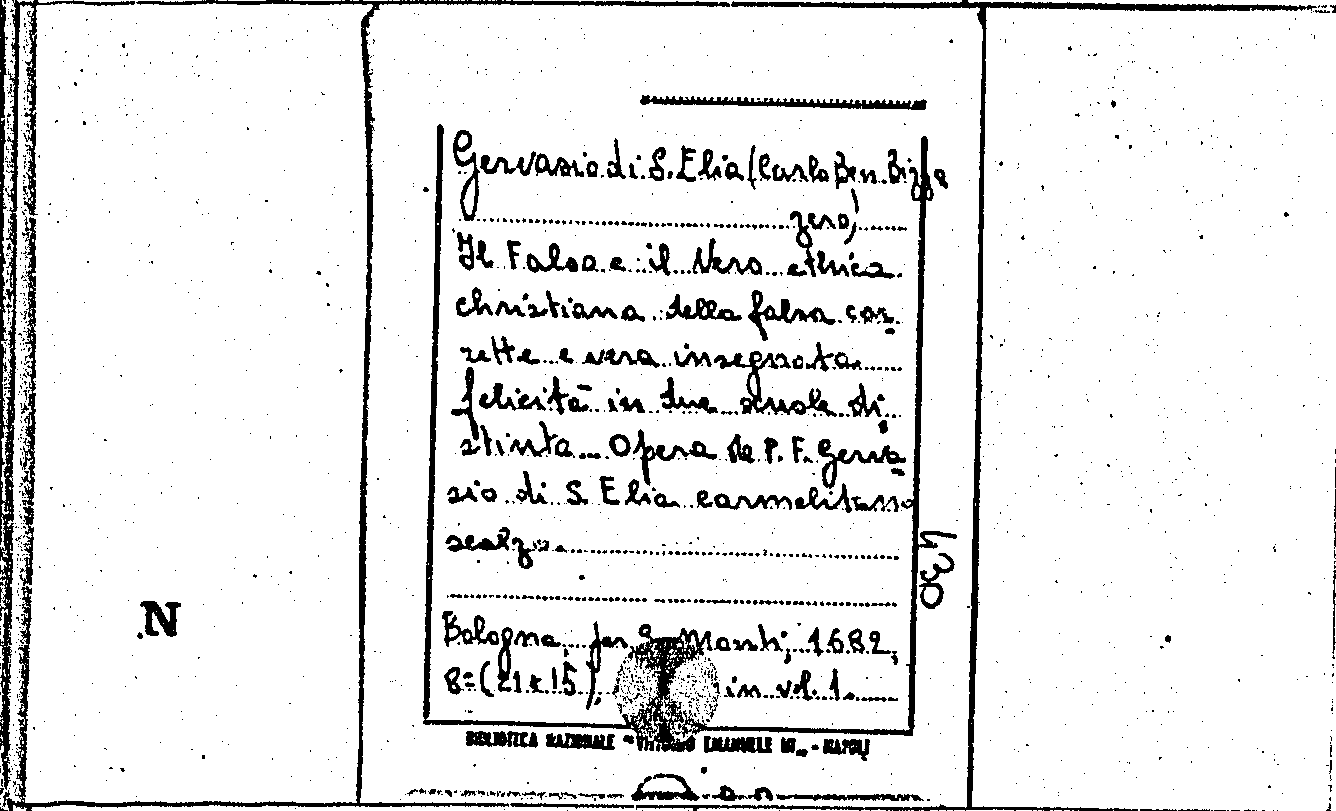 Gervasio di S. Elia (Carlo Ben. Bizza
zero)
Il Falso e il Vero ethica
christiana della falsa cor
rette e vera insegnata
felicità in due scuole di
stinta... Opera de P. F. Gerva
sio di S. Elia carmelitano
scalzo.
430
N
Bologna, per Monti, 1682,
8=(21x15), in vol. 1.
BIBLIOTECA NAZIONALE "VITTORIO EMANUELE III" - NAPOLI